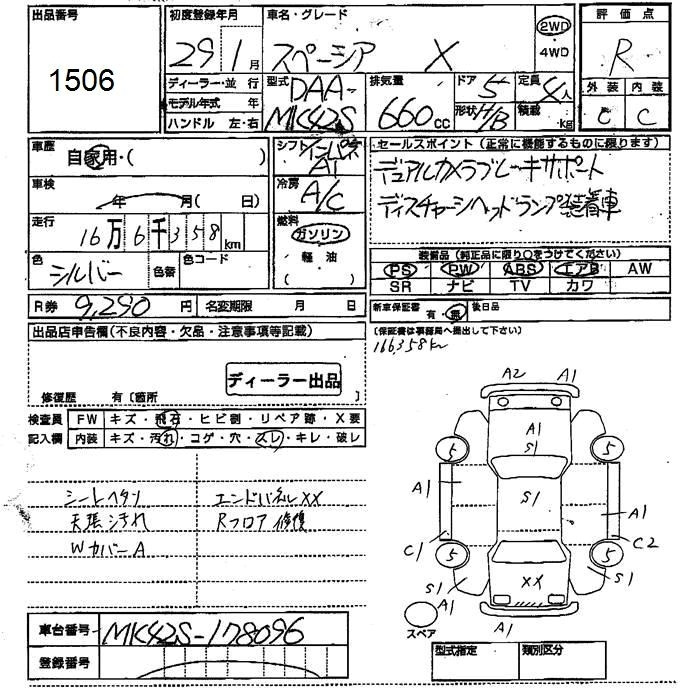 出品番号
1506
初度登録年月
29 1月
車名・グレード
スペーシア X
2WD
・4WD
評価点
R
ディーラー・並行
モデル年式 年
ハンドル 左・右
型式
DAA-
MK42S
排気量
660cc
ドア 5
形状 H/B
定員 4人
積載 kg
外装 内装
C C
車歴
自家用・( )
車検
年 月( 日)
走行
16万6千358km
色
シルバー
色替
色コード
シフト
インパネ
AT
冷房
A/C
燃料
ガソリン
軽油
( )
セールスポイント(正常に機能するものに限ります)
デュアルカメラブレーキサポート
ディスチャージヘッドランプ装着車
装備品(純正品に限り○をつけてください)
PS PW ABS エアB AW
SR ナビ TV カワ
R券 9,290円
名変期限 月 日
新車保証書 有・無
後日品
(保証書は事務局へ提出して下さい)
166358km
出品店申告欄(不良内容・欠品・注意事項等記載)
ディーラー出品
修復歴 有〔箇所 〕
検査員記入欄
FW キズ・飛石・ヒビ割・リペア跡・X要
内装 キズ・汚れ・コゲ・穴・スレ・キレ・破レ
シートヘタリ エンドパネルXX
天張汚れ Rフロア修復
WカバーA
A2 A1
A1
S1
5 5
A1 S1 A1
C1 C2
5 5
S1 XX S1
A1
A1
スペア
車台番号 MK42S-178096
登録番号
型式指定 類別区分